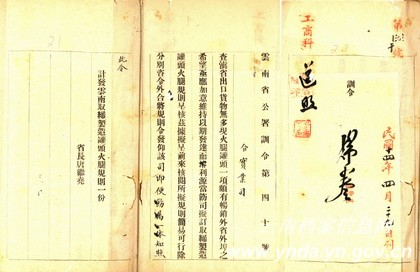 工商科
訓令
民國十四年四月二十九日
雲南省公署訓令第四十號
令實業司
查滇省出口貨物無多現火腿罐頭一項頗有暢銷外省外埠之
希望亟應加意維持以期發達而增利源當飭司擬訂取締製造
罐頭火腿規則呈核茲據擬呈前來核閱所擬規則簡易可行除
分別咨令外合將規則令發仰該司即便
遵照
此令
計發雲南取締製造罐頭火腿規則一份
省長唐繼堯
www.ynda.yn.gov.cn